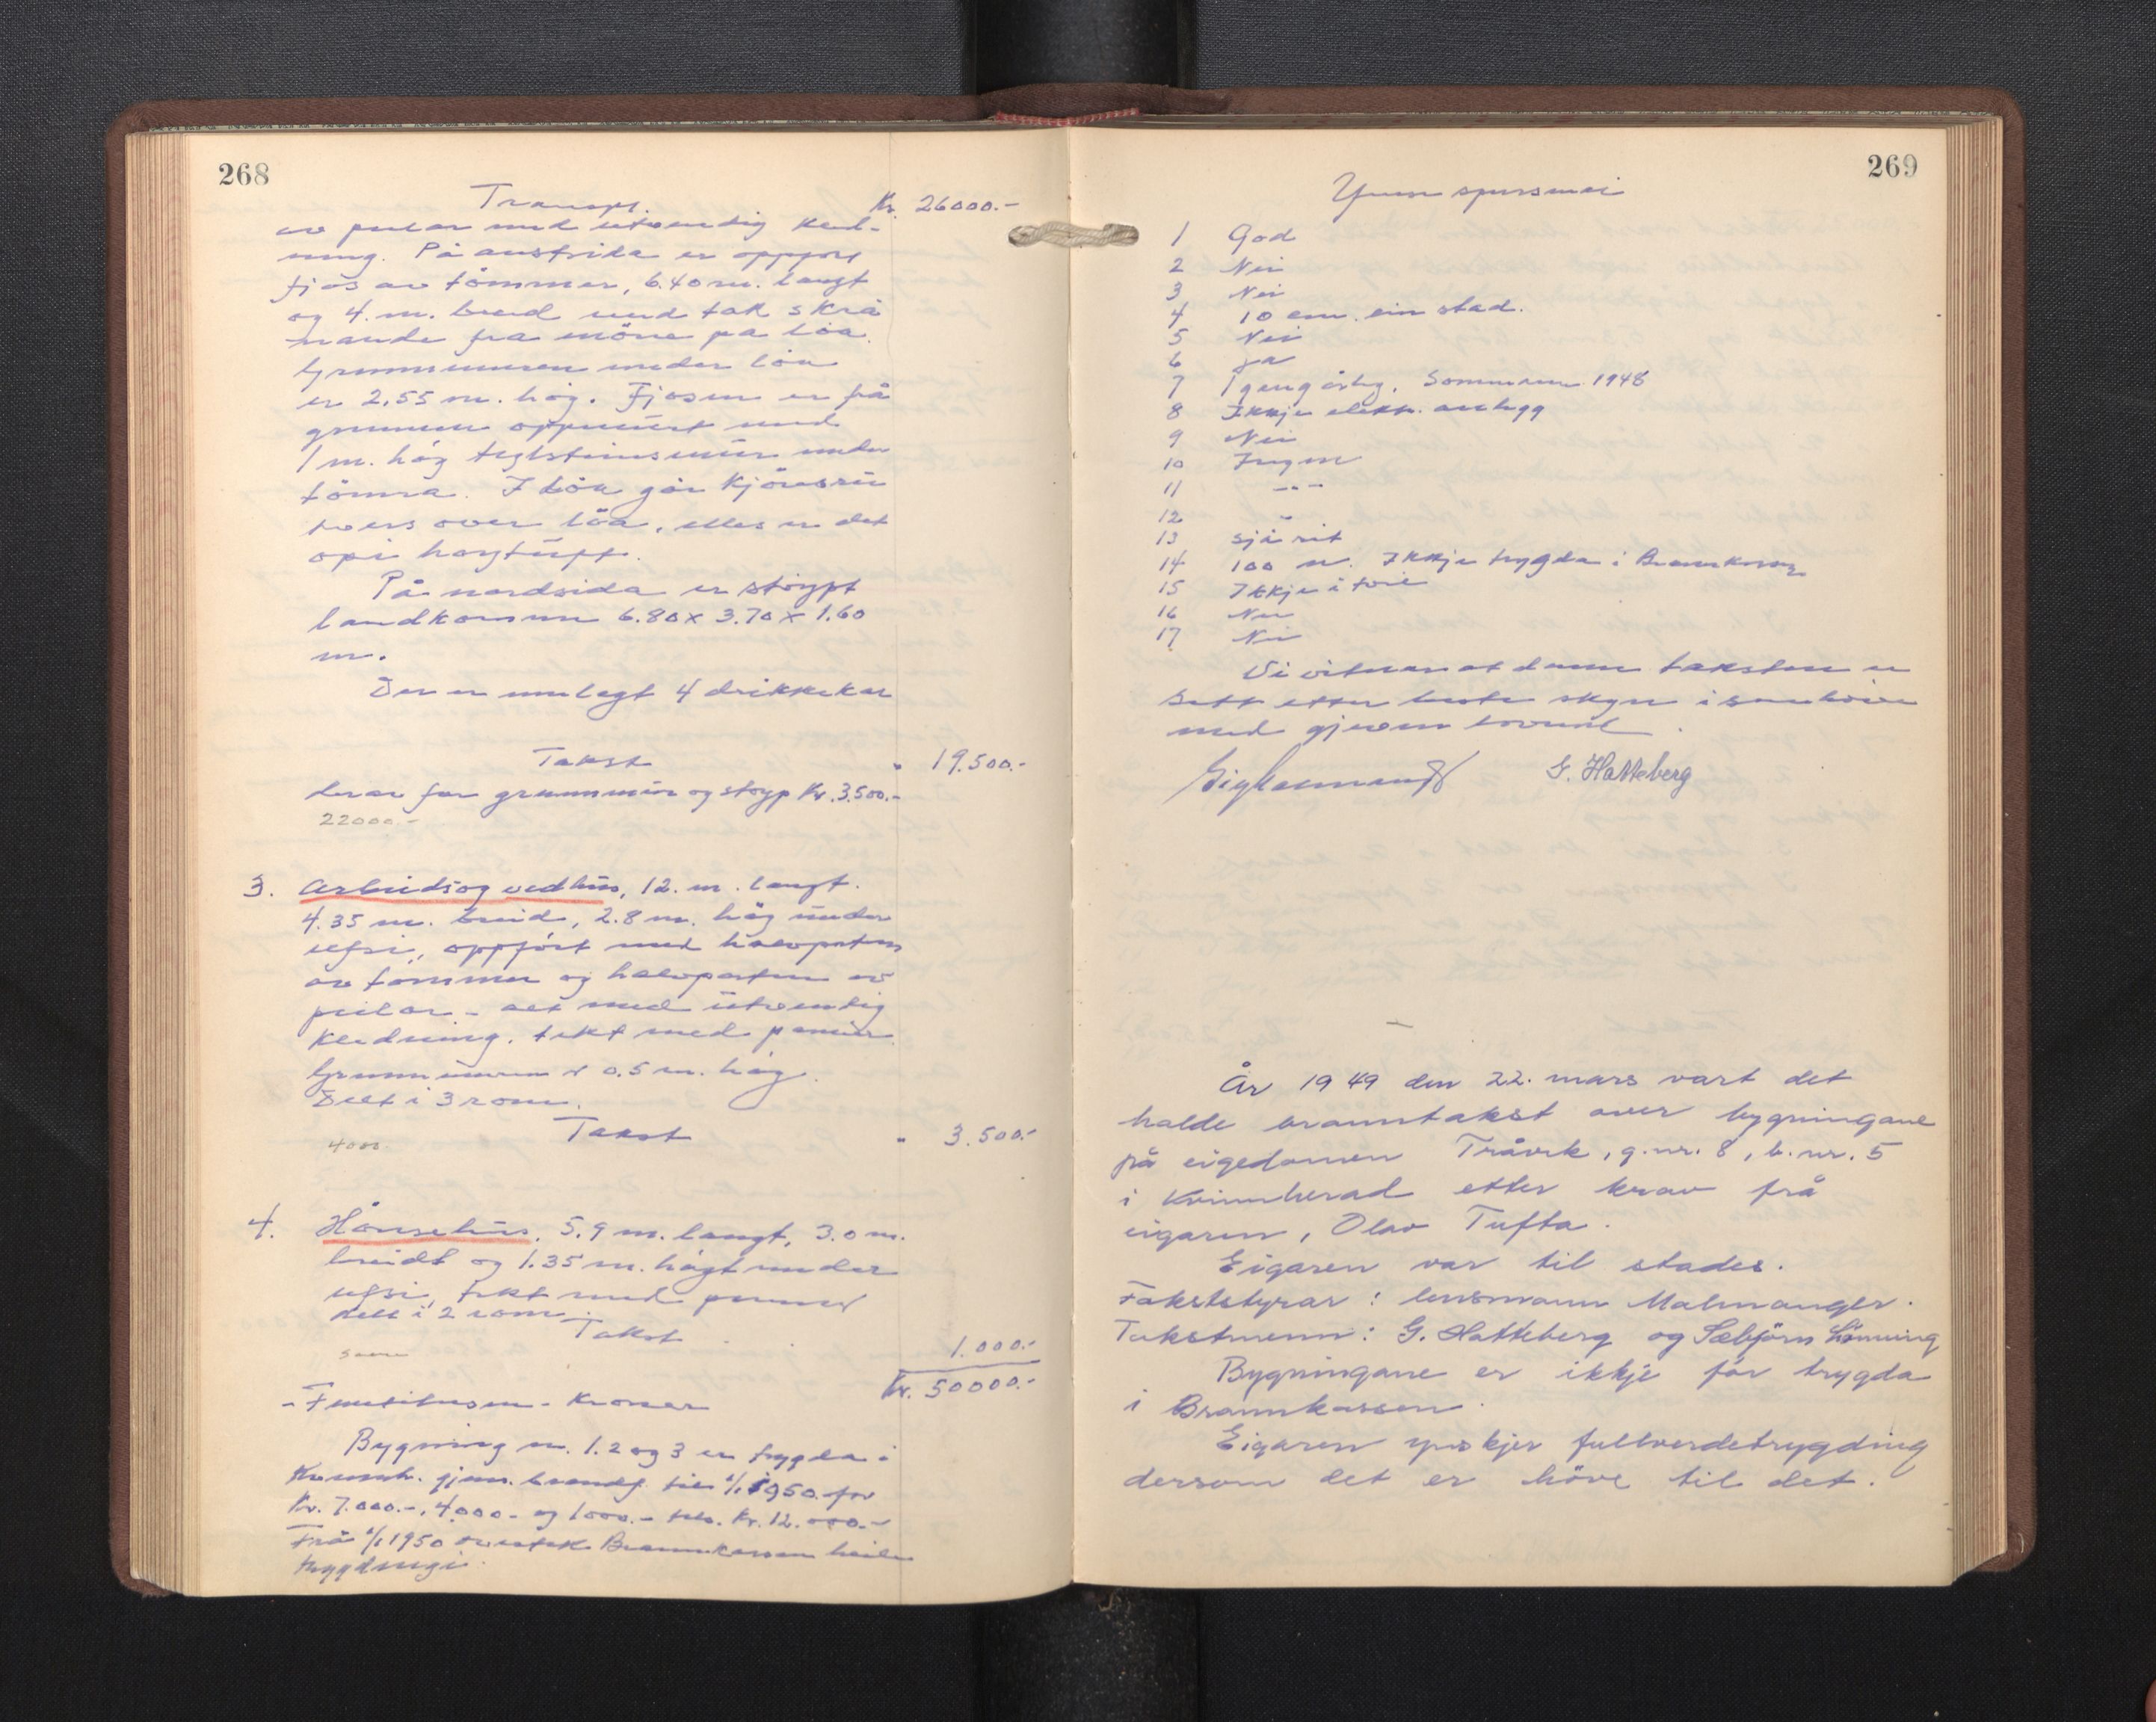 268
Transp. Kr. 26000.-
av pilar med utvendig kled-
ning. På austsida er oppført
fjos av tømmer, 6.40 m. langt
og 4. m. breid med tak skrå
nande fra møne på löa.
Grunnmuren under löa
er 2,55 m. høg. Fjosen er på
grunnen oppmurt med
1 m. høg teglsteinsmur under
tømra. I löa går kjøresvü
tvers over löa, elles er det
opi höystüft.
På nordsida er støypt
landkommen 6.80 x 3.70 x 1.60
m.
Der er innlagt 4 drikkekar
Takst " 19.500.-
derav for grunnmur og støyp Kr. 3.500.-
22000.-
3. Arbeids og vedhus, 12. m. langt.
4.35 m. breid, 2.8 m. høg under
ufsi, oppført med halvparten
av tømmer og halvparten av
pilar - alt med utvendig
kledning, tekt med panner.
Grunnmuren er 0.5 m. høg.
Delt i 3 rom.
Takst " 3.500.-
4000.
4. Hønsehus, 5.9 m. langt, 3.0 m.
breidt og 1.35 m. høgt under
ufsi, tekt med panner
delt i 2 rom.
Takst 1.000.-
same
Kr. 50000.-
- Femtitusen - kroner
Bygning nr. 1. 2 og 3 er trygda i
Kvinnh. gjens. brandf. til 1/1 1950 for
Kr. 7.000.-, 4.000.- og 1000.- tils. Kr. 12.000.-
Frå 1/1 1950 overtek Brannkassen heile
trygdingi.
269
Ymse spursmål
1 God
2 Nei
3 Nei
4 10 cm. ein stad.
5 Nei
6 Ja
7 Igangårleg. Sommaren 1948
8 Ikkje elektr. anlegg
9 Nei
10 Ingen
11 -"-
12 "
13 sjå rit
14 100 m. Ikkje trygda i Brannkassen
15 Ikkje i tvil
16 Nei
17 Nei
Vi vitnar at denne taksten er
sett etter beste skyn i samhøve
med gjevne lovnad.
G. Hatteberg
År 1949 den 22. mars vart det
halde branntakst over bygningane
på eigedomen Tråvik, g.nr. 8, b.nr. 5
i Kvinnherad etter krav frå
eigaren, Olav Tufta.
Eigaren var til stades.
Takststyrar: lensmann Malmanger.
Takstmenn: G. Hatteberg og Sæbjørn Lönning
Bygningane er ikkje før trygda
i Brannkassen.
Eigaren ynskjer fullverdetrygding
dersom det er høve til det.